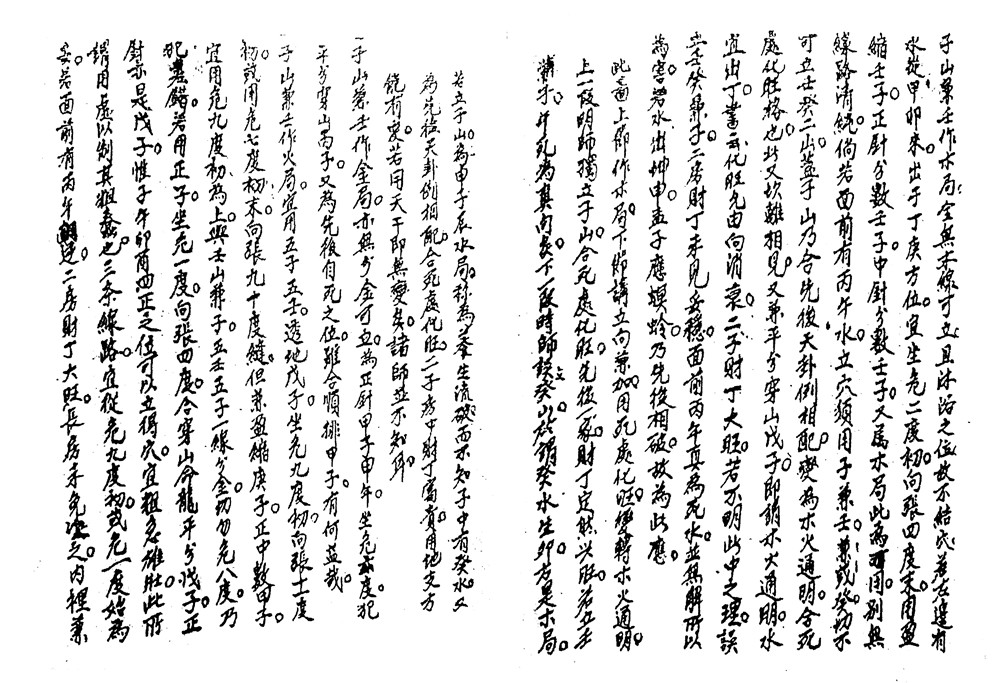 子山兼壬作木局全無木線可立且沐浴之位故不結氏若左邊有
水從甲卯來出于丁庚方位宜坐危二度初向張四度末用盈
縮壬子正針分數壬子中針分數士子又為木局此為可用別無
線路清純倘若面前有丙午水立穴須用子兼壬兼或癸切不
可立壬癸二山蓋子山乃合先後天卦例相配變為木火通明合死
處化旺格也此又坎離相見又兼平分穿山戊子即謂木火通明水
宜出丁書云化旺先由向消衰二子財丁大旺若不明此中之理誤
立壬癸兼子二房財丁未見安穩面前丙午真為死水並無解所以
為害若水出坤申立子應螟蛉乃先後相破故為此應
此面上節作木局下節講立向兼加用死處化旺變轉木火通明
上一段明師獨立子山合死處化旺先後一家財丁定然兴旺若立壬
兼子午死為真向衰下一段時師誤癸山於謂癸水生卯若是木局
若立子山為申子辰水局称為養生流破而不知子中有癸水又
為先後天卦例相配合死處化旺二子房中財丁富貴用地支方
能有变若用天干即無變矣諸師並不知耳
子山兼壬作金局亦無分金可立為正針甲子中午坐危式度犯
平分穿山丙子又為先後自死之位雖合順排甲子有何益哉
子山兼壬作火局宜用五子五壬透地戊子坐危九度初向張十二度
初或用危七度初末向張九十度縫但兼盈縮庚子正中數甲子
宜用危九度初為上與壬山兼子五壬五子一線分金切勿危八度乃
犯差錯若用正子坐危一度向張四度合穿山命龍平分戊子正
對亦是戊子惟子午卯酉四正之位可以立得穴宜粗急雄壯此所
謂用虛以制其粗蠢之三条線路宜從危九度初或危一度始為
妥若面前有丙午朝迎二房財丁大旺長房未免冲之內裡兼